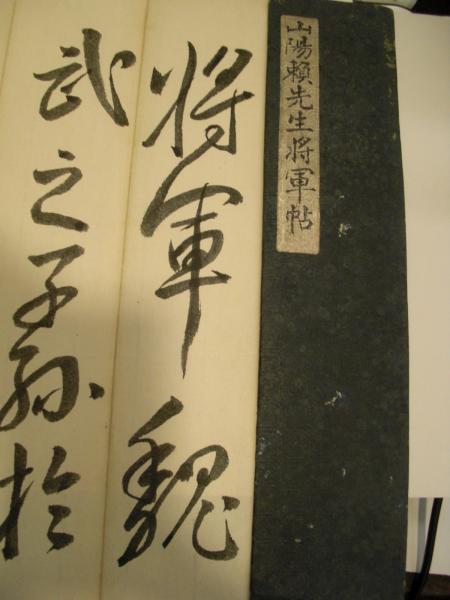 山陽頼先生将軍帖
将軍魏
武之子孫於